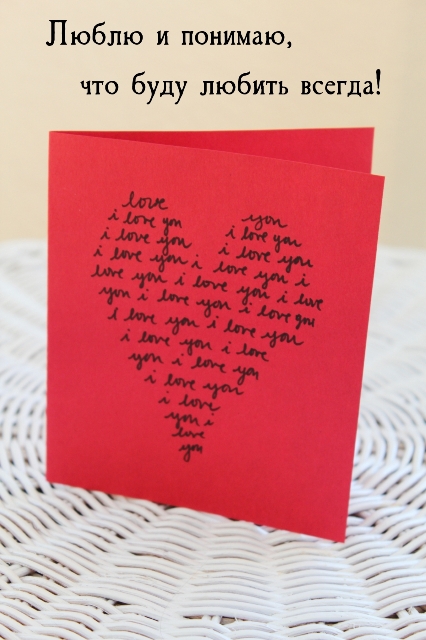 Люблю и понимаю,
что буду любить всегда!
love you
i love you i love you
i love you i love you
i love you i love you i
love you i love you i love
you i love you i love you
I love you i love you
i love you i love
you i love you
i love you
i love
you i
love
you